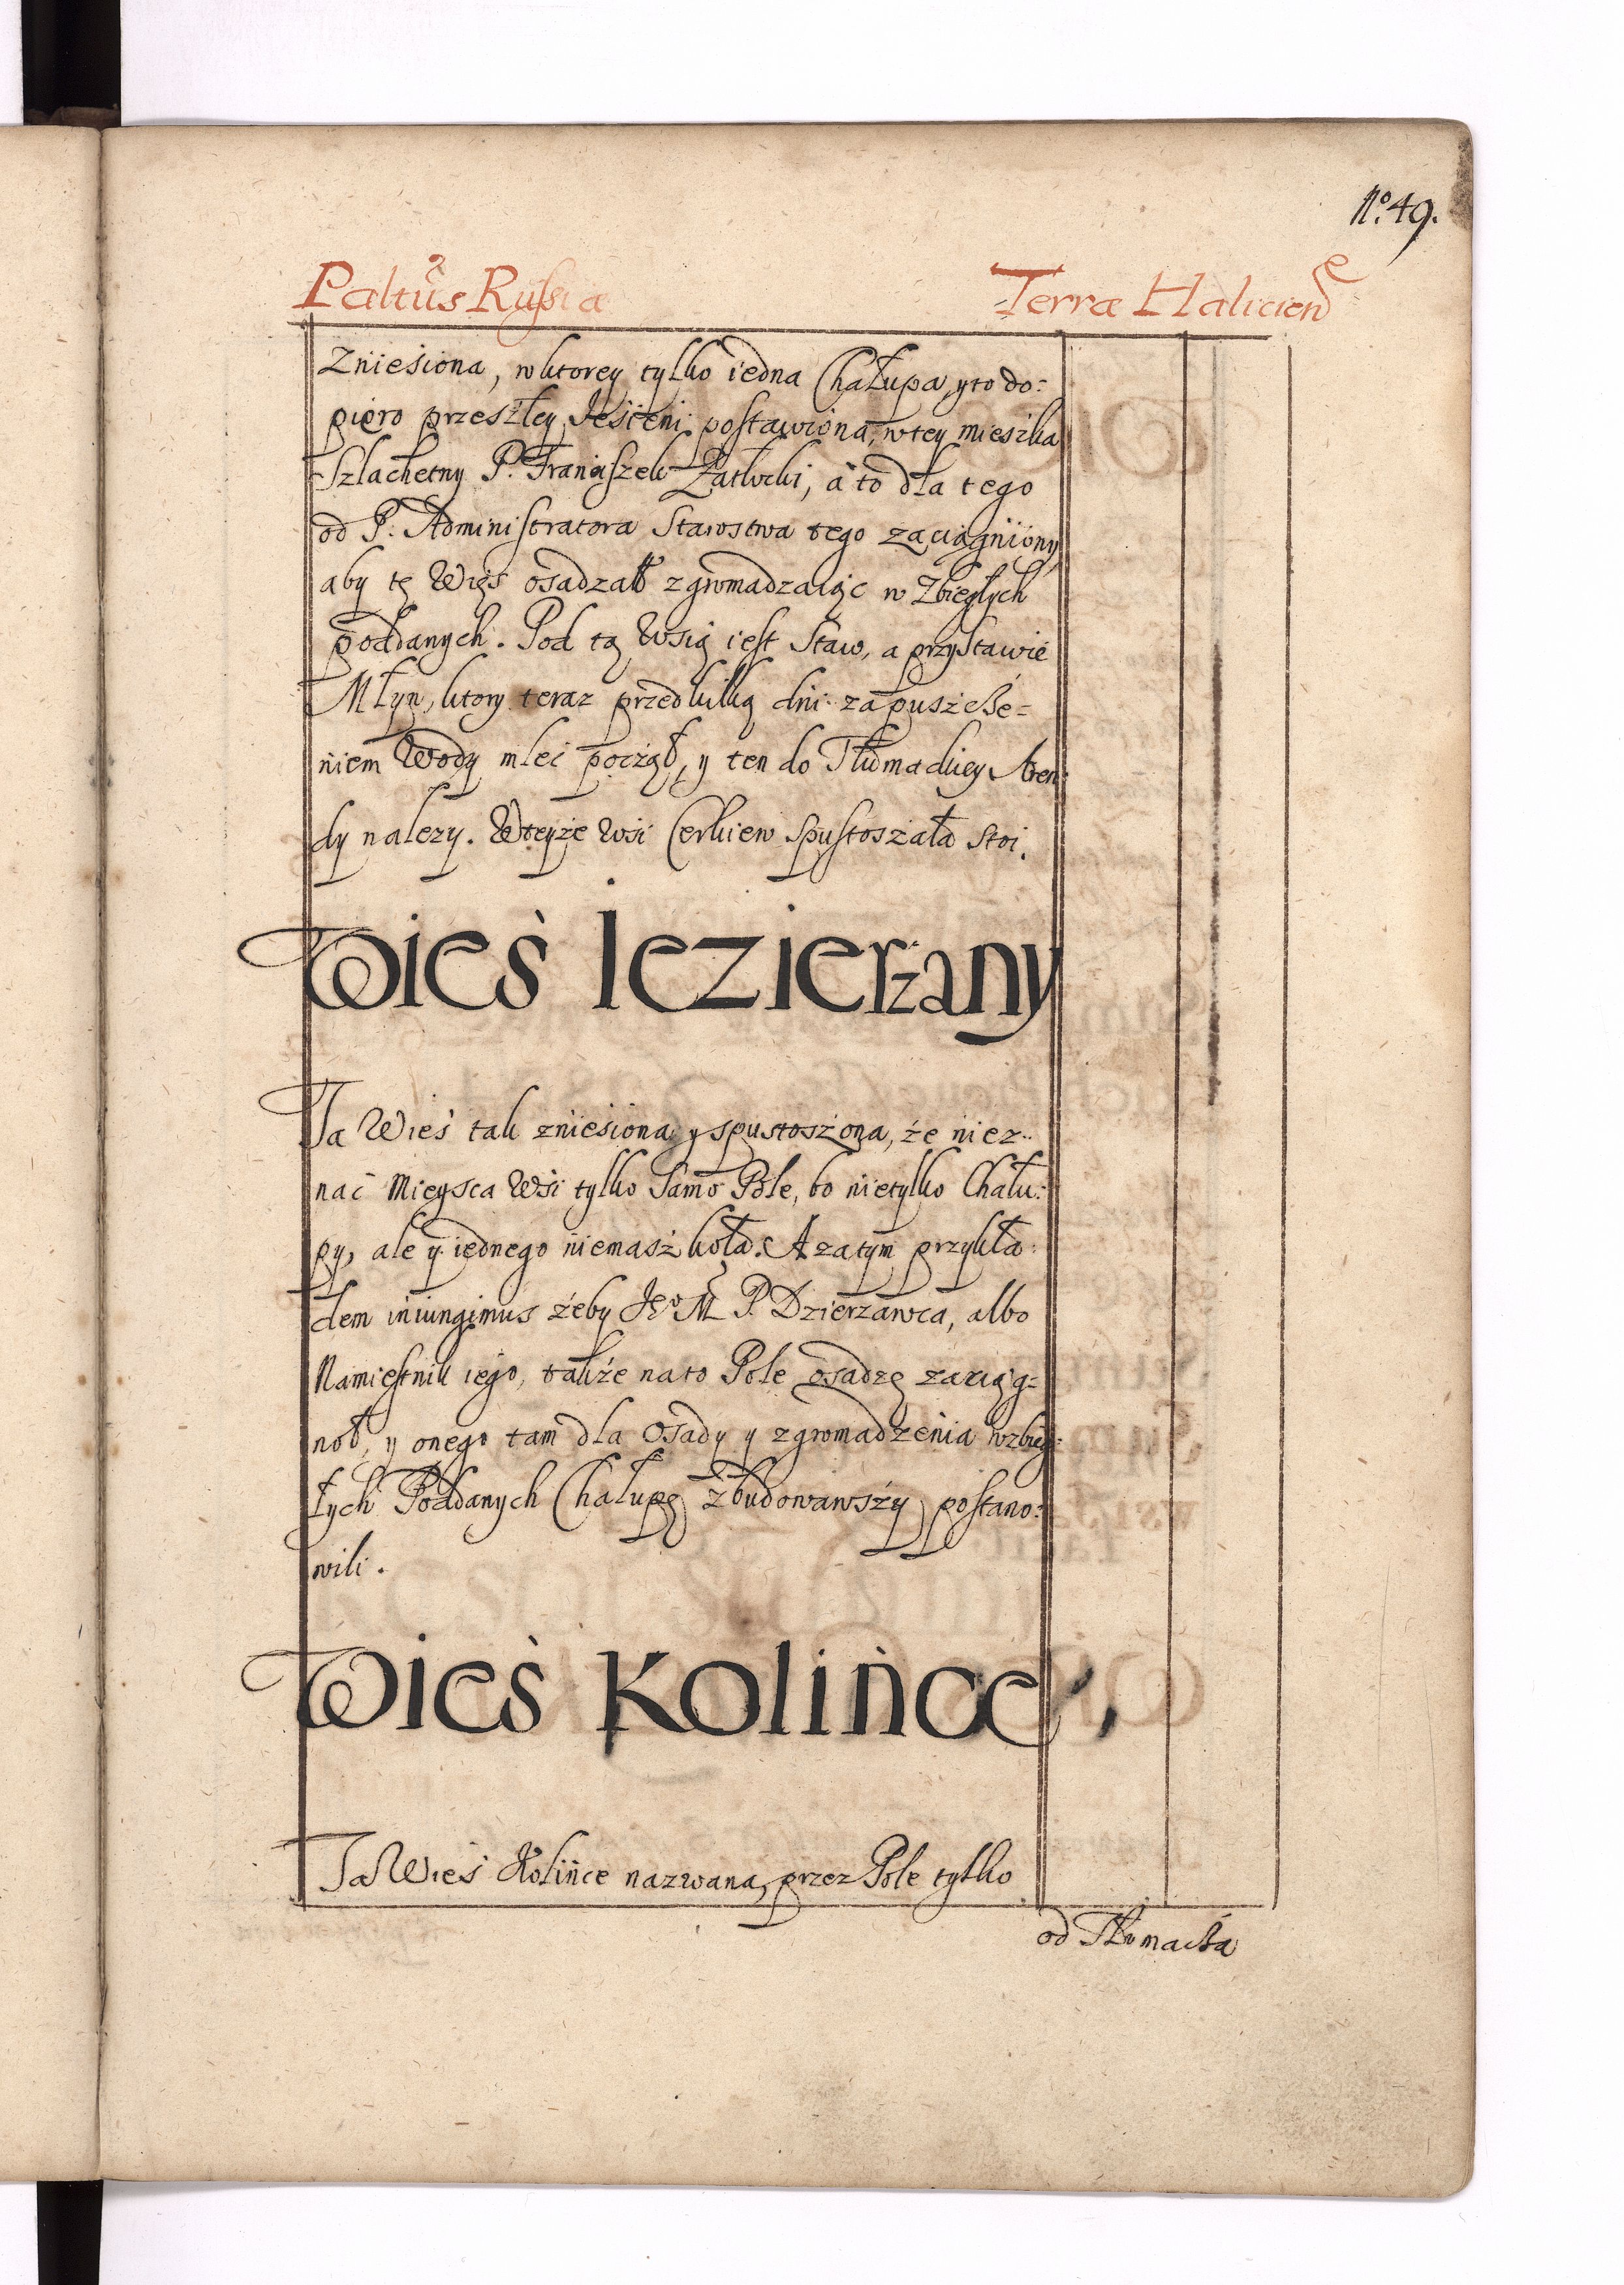 No. 49.
Paltũs Russiæ Terræ Halicien
Zniesiona, w ktorey tylko iedna Chałupa, y to do:
piero przeszłey Jesieni postawiona, w tey mieszka
Szlachetny P. Franciszek Załucki, a to dla tego
od P. Administratora Starostwa tego zaciągniony,
aby tę Wieś osadzał zgromadzaiąc w Zbiegłych
poddanych. Pod tą Wsią iest Staw, a przy Stawie
Młyn, ktory teraz przed kilką dni zapuszcze=
niem Wody mleć począł, y ten do Tłumackiey Aren:
dy nalezy. W teyże Wsi Cerkiew spustoszała stoi.
Wieś Iezierzany
Ta Wieś tak zniesiona y spustoszona, że niez=
nać Mieysca Wsi tylko Samo Pole, bo nietylko Chału:
py, ale y iednego niemasz koła. A zatym przykła:
dem iniungimus żeby Jeo M P. Dzierzawca, albo
Namiestnik iego, także na to Pole osadzę zaciąg=
noł, y onego tam dla Osady y zgromadzenia wzbieg:
łych Poddanych Chałupę zbudowawszy postano:
wili.
Wieś Kolińce,
Ta Wieś Kolińce nazwana, przez Pole tylko
od Tłumacza